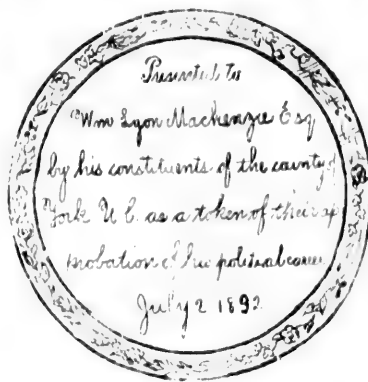 Presented to
Wm Lyon Mackenzie Esq
by his constituents of the county of
York U C. as a token of their ap
probation of his political career
July 2 1892